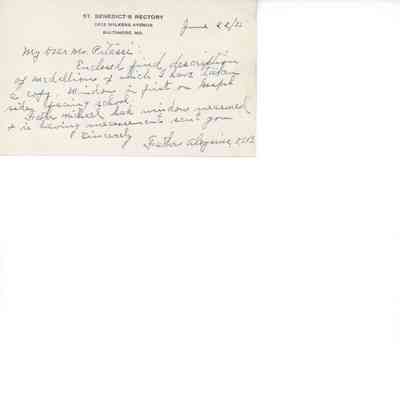 ST. BENEDICT'S RECTORY
2612 WILKENS AVENUE
BALTIMORE, MD.
June 22/
My Dear Mr. Pitassi:
Enclosed find description
of medallions of which I have taken
a copy. Window is first on Gospel
side, facing school.
Father Michael had window measured
+ is having measurements sent you.
Sincerely
Father Aloysius, O.S.B.